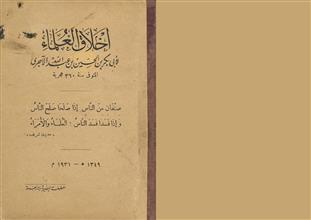 أخلاق العلماء
لأبي بكر بن الحسين بن عبد الله الآجري
المتوفى سنة ٣٦٠ هجرية
صنفان من الناس إذا صلحا صلح الناس
وإذا فسدا فسد الناس : العلماء والأمراء
١٣٤٩ هـ - ١٩٣١ م